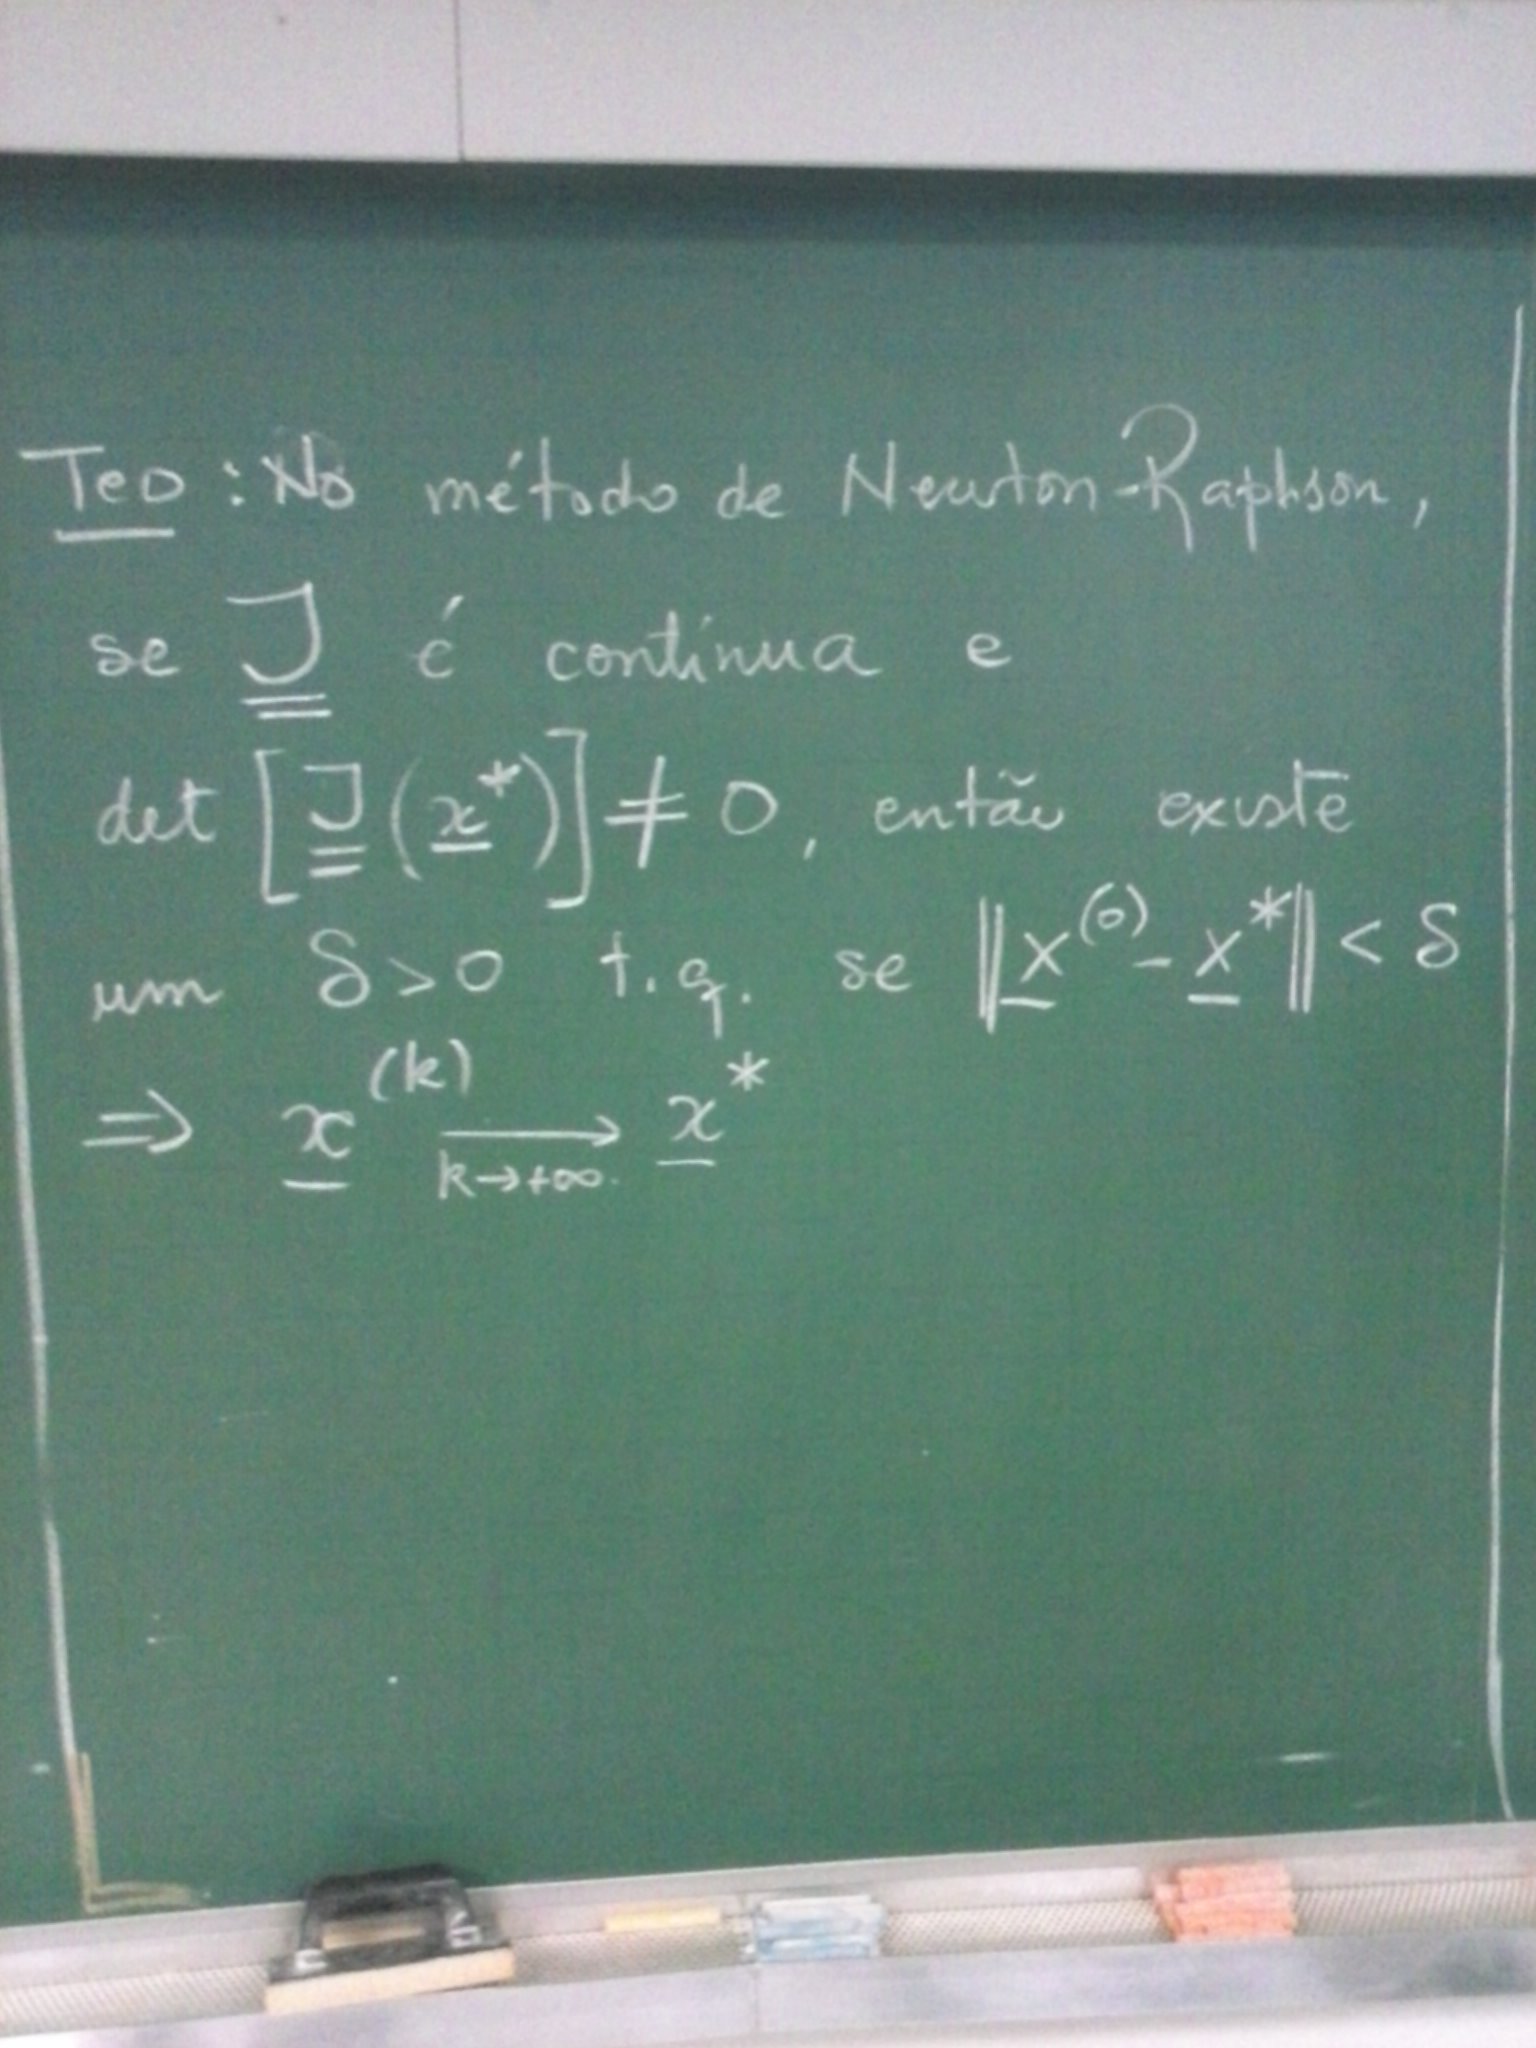 Teo : No método de Newton-Raphson,
se J é contínua e
det [J(x*)] ≠ 0, então existe
um δ > 0 t.q. se ||x⁽⁰⁾ - x*|| < δ
⇒ x⁽ᵏ⁾ → x*
k→+∞.